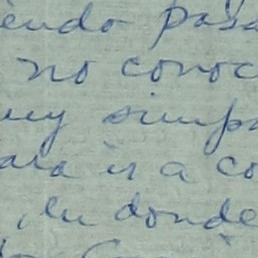 endo pasa
no conoc
uy simpa
ara ir a co
, en donde